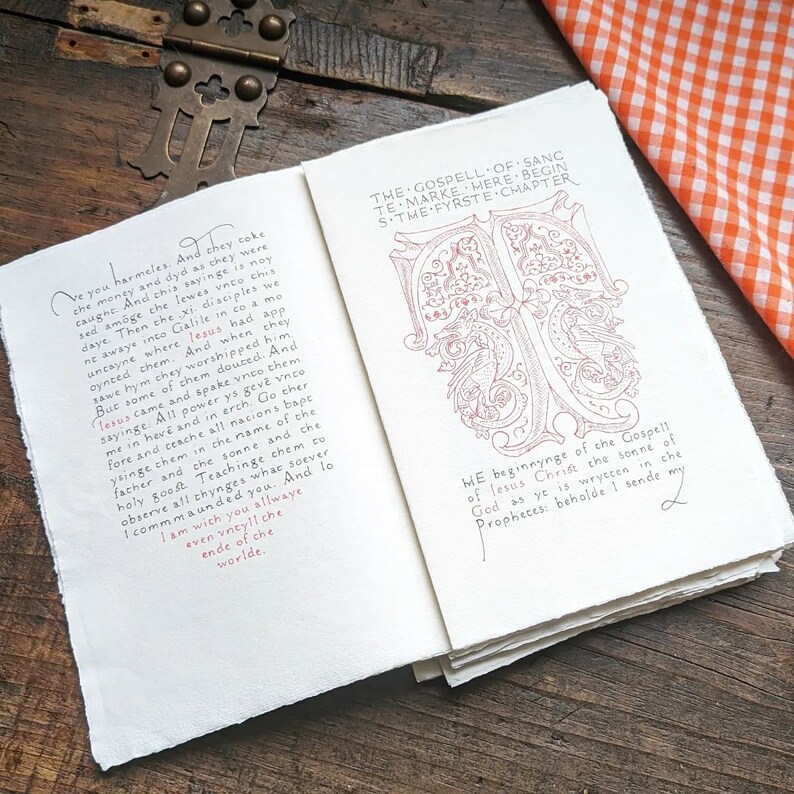 ve you harmeles. And They toke
the money and dyd as they were
taught. And this sayinge is noy
sed amōge the lewes vnto this
daye. Then the .xi. disciples we
nt awaye into Galile in to a mo
untayne where Iesus had app
oynted them. And when they
sawe hym they worshipped him.
But some of them douted. And
Iesus came and spake vnto them
sayinge: All power ys gevē vnto
me in hevē and in erth. Go ther
fore and teache all nacions bapt
ysinge them in the name of the
father and the sonne and the
holy goost. Teachinge them to
observe all thynges what soever
I commmaunded you. And lo
I am with you allwaye
even vntyll the
ende of the
worlde.
THE · GOSPELL · OF · SANC
TE · MARKE · HERE · BEGIN
S · THE · FYRSTE · CHAPTER
T
HE beginnynge of the Gospell
of Iesus Christ the sonne of
God as yt is wrytten in the
Prophetes: beholde I sende my